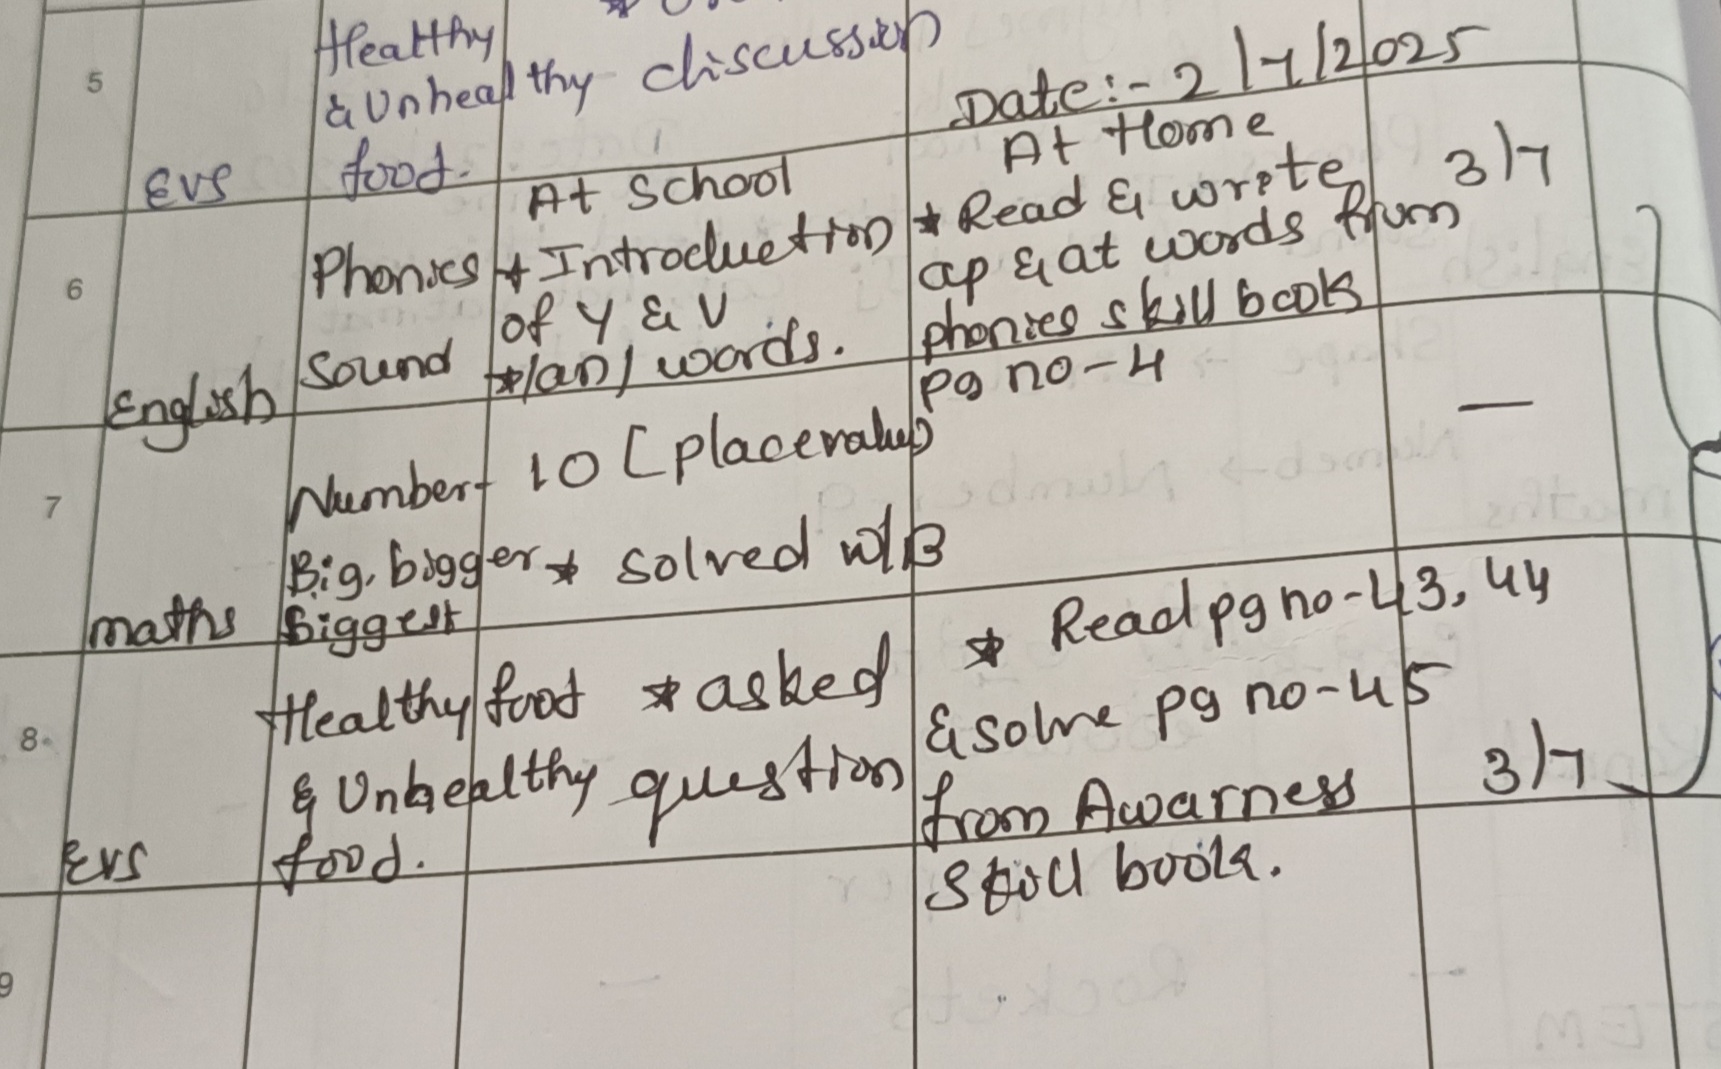 5
EVS
Healthy
& Unhealthy discussion
food.
Date:- 2/7/2025
At School
At Home
6
English
Phonics
Sound
* Introduction
of Y & V
*/an/ words.
* Read & write
ap & at words from
phonics skill book
pg no-4
3/7
7
maths
Number- 10 [placevalue)
Big, bigger * solved w/B
Biggest
—
8
EVS
Healthy food
& Unhealthy
food.
* asked
question
* Read pg no-43, 44
& solve pg no-45
from Awarness
Skill book.
3/7
9